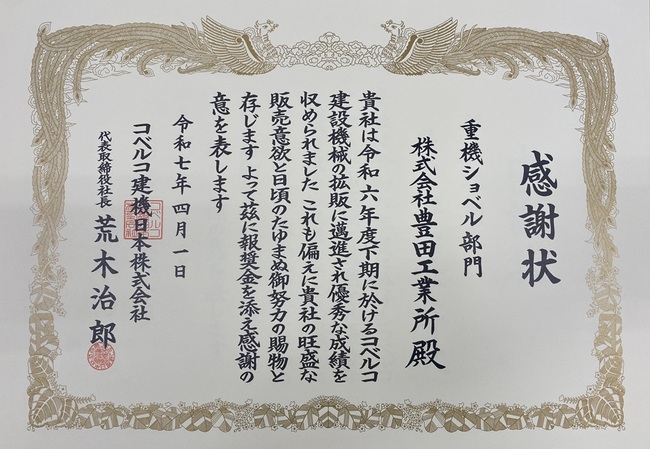 感謝状
重機ショベル部門
株式会社豊田工業所殿
貴社は令和六年度下期に於けるコベルコ
建設機械の拡販に邁進され優秀な成績を
収められました これも偏えに貴社の旺盛な
販売意欲と日頃のたゆまぬ御努力の賜物と
存じます よって茲に報奨金を添え感謝の
意を表します
令和七年四月一日
コベルコ建機日本株式会社
代表取締役社長 荒木治郎